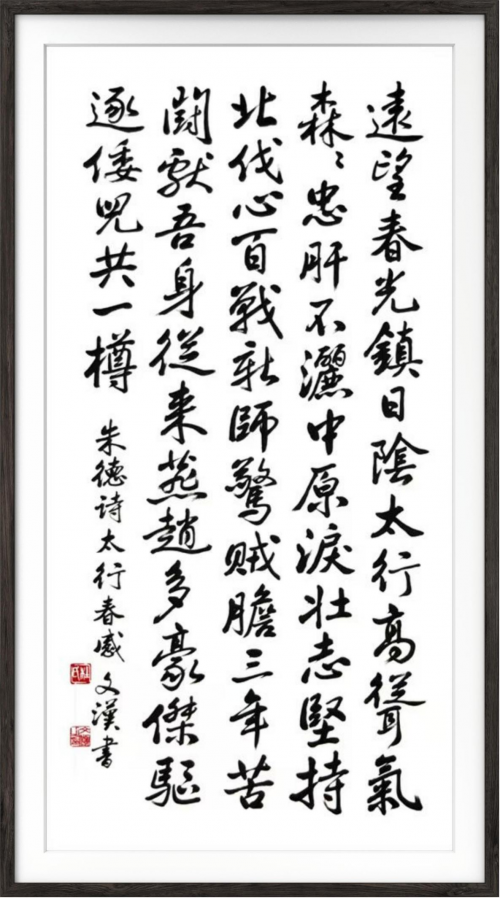 遠望春光鎮日陰太行高聳氣
森〻忠肝不灑中原淚壯志堅持
北伐心百戰新師驚贼膽三年苦
鬪獻吾身從来燕趙多豪傑驅
逐倭兒共一樽
朱德诗太行春感 文漢書